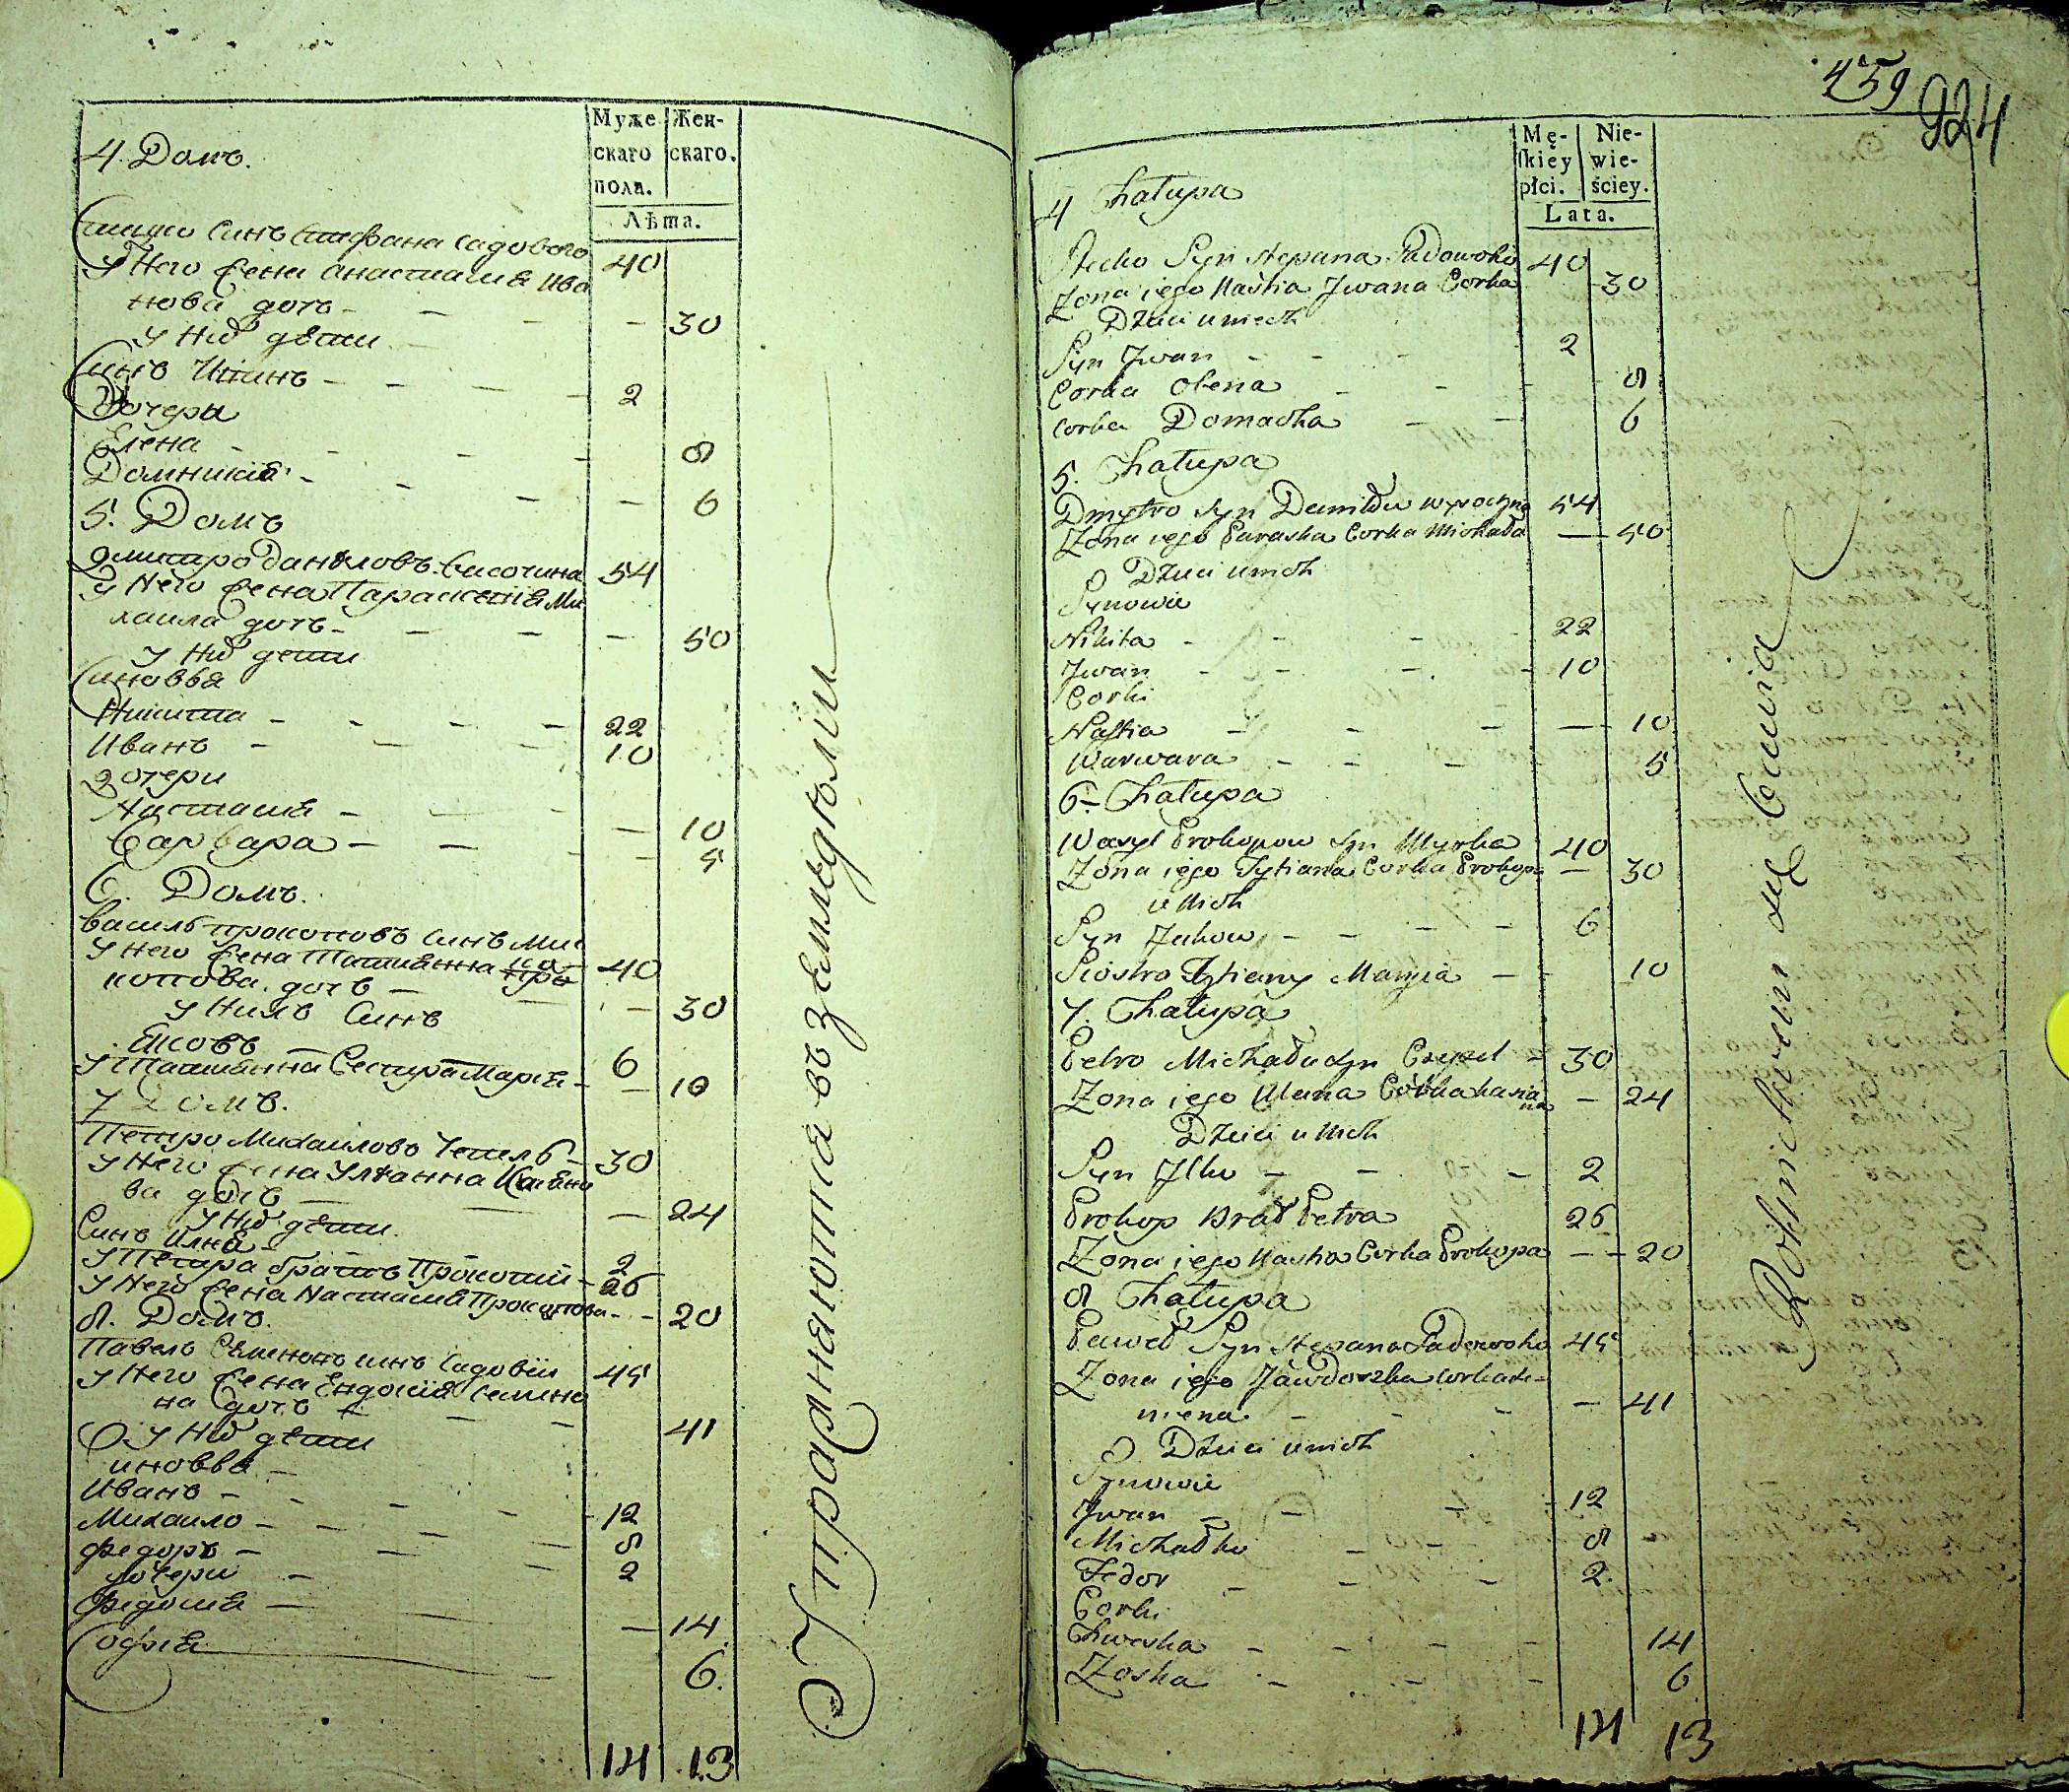 Муже
скаго
пола.
Жен-
скаго.
Лѣта.
4 Домъ.
Стецко Синъ Стефана садового 40
У Него Жена Анастасиѣ Ива
нова дочь - - - - 30
У Них дѣти
Синъ Иванъ - - - - 2
Дочери
Елена - - - - 8
Домникиѣ - - - - 6
5. Домъ
Дмитро Даниловъ Височина 54
У Него Жена Параскевиѣ Ми
хаила дочь - - - - 50
У Них дети
Синовья
Никита - - - - 22
Иванъ - - - 10
Дочери
Настасиѣ - - - - 10
Варвара - - - - 5
6. Домъ.
Василь Прокоповъ Синъ
У Него Жена Татиянна про 40
копова дочь - - - 30
У Нихъ Синъ
Яковъ - 6
У Татиянни Сестра Мариѣ - - 10
7 Домъ.
Петро Михайлово - 30
У Него Жена Улианна Касияно
ва дочь - - - 24
У Них дѣти.
Синъ Илиѣ - 2
У Петра братъ Прокопий - 26
У Него Жена Настасиѣ Прокопова - - 20
8. Домъ.
Павелъ Семеновъ синъ Садовій 45
У Него Жена Евдокиѣ Семено
на дочь - - - 41
У Них дѣти
Синовьѣ -
Иванъ - - - - 12
Михаило - - - - 8
Федоръ - - - 2
дочери -
Федосиѣ - - - 14
Софиѣ - 6.
14 13
Упражняются въ земледѣлии
459
924
Mę-
ſkiey
płci.
Nie-
wie-
ściey.
Lata.
4 Chałupa
Stecko Syn Stepana Sadowoho 40
Zona iego Nastia Jwana Corka 30
Dzieci u niech
Syn Jwan - - - 2
Corka Olena - - - 8
Corka Domacha - - 6
5. Chałupa
Dmytro Syn Daniłow Wysoczyna 54
Zona iego Paraska Corka Michała — 50
Dzieci u nich
Synowie
Nikita - - - 22
Jwan - - - - 10
Corki
Nastia - - - — 10
Warwara - - - 5
6 - Chałupa
Wasyl Prokopow Syn Myrka 40
Zona iego Tytiana Corka Prokopa — 30
u Nich
Syn Jakow - - - - 6
Siostra Tytiany Maryia - - 10
7. Chałupa
Petro Michała Syn Czepel - 30
Zona iego Ulana Corka Kasia
na — 24
Dzieci u Nich
Syn Jlko - - - 2
Prokop Brat Petra 26
Zona iego Nastia Corka Prokopa - - 20
8 Chałupa
Paweł Syn Stepana Sadowoho 45
Zona iego Jawdoszka Corka Se-
miena - - - — 41
Dzieci u nich
Synowie
Jwan - - - - 12
Michałko - - 8
Fedor - - - 2.
Corki
Chweska - - - - 14
Zoska - - - 6
14 13
Rolnictwem się bawia